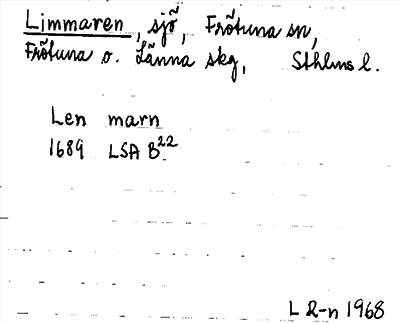 Limmaren, sjö, Frötuna sn,
Frötuna o. Länna skg, Sthlms l.
Len marn
1689 LSA B22
L R-n 1968